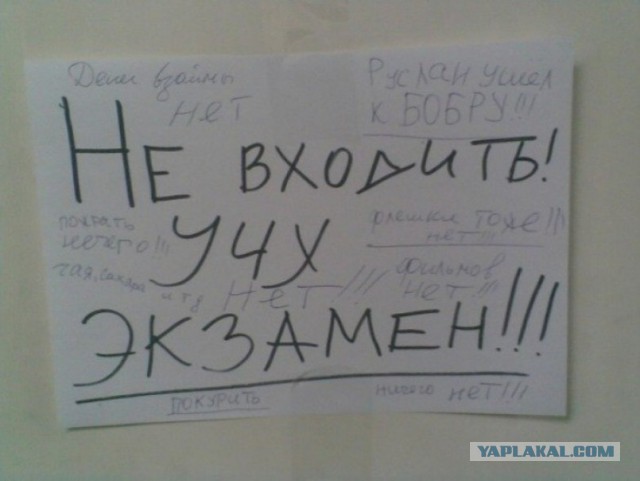 Денег взаймы
нет
Руслан ушел
к БОБРУ!!!
НЕ ВХОДИТЬ!
пожрать
нечего!!!
УЧУ
флешки тоже!!!
нет!!!
чая, сахара
и тд
Нет!!!
фильмов
нет!!!
ЭКЗАМЕН!!!
ПОКУРИТЬ
ничего нет!!!
YAPLAKAL.COM